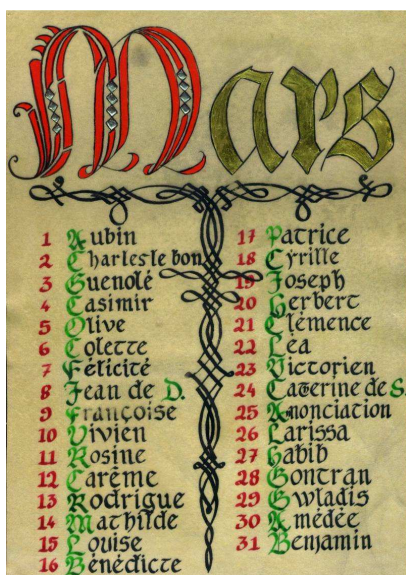 Mars
1 Aubin
2 Charles le bon
3 Guenolé
4 Casimir
5 Olive
6 Colette
7 Félicité
8 Jean de D.
9 Françoise
10 Vivien
11 Rosine
12 Carême
13 Rodrigue
14 Mathilde
15 Louise
16 Bénédicte
17 Patrice
18 Cyrille
19 Joseph
20 Herbert
21 Clémence
22 Léa
23 Victorien
24 Caterine de S.
25 Anonciation
26 Larissa
27 habib
28 Gontran
29 Gwladis
30 Amédée
31 Benjamin